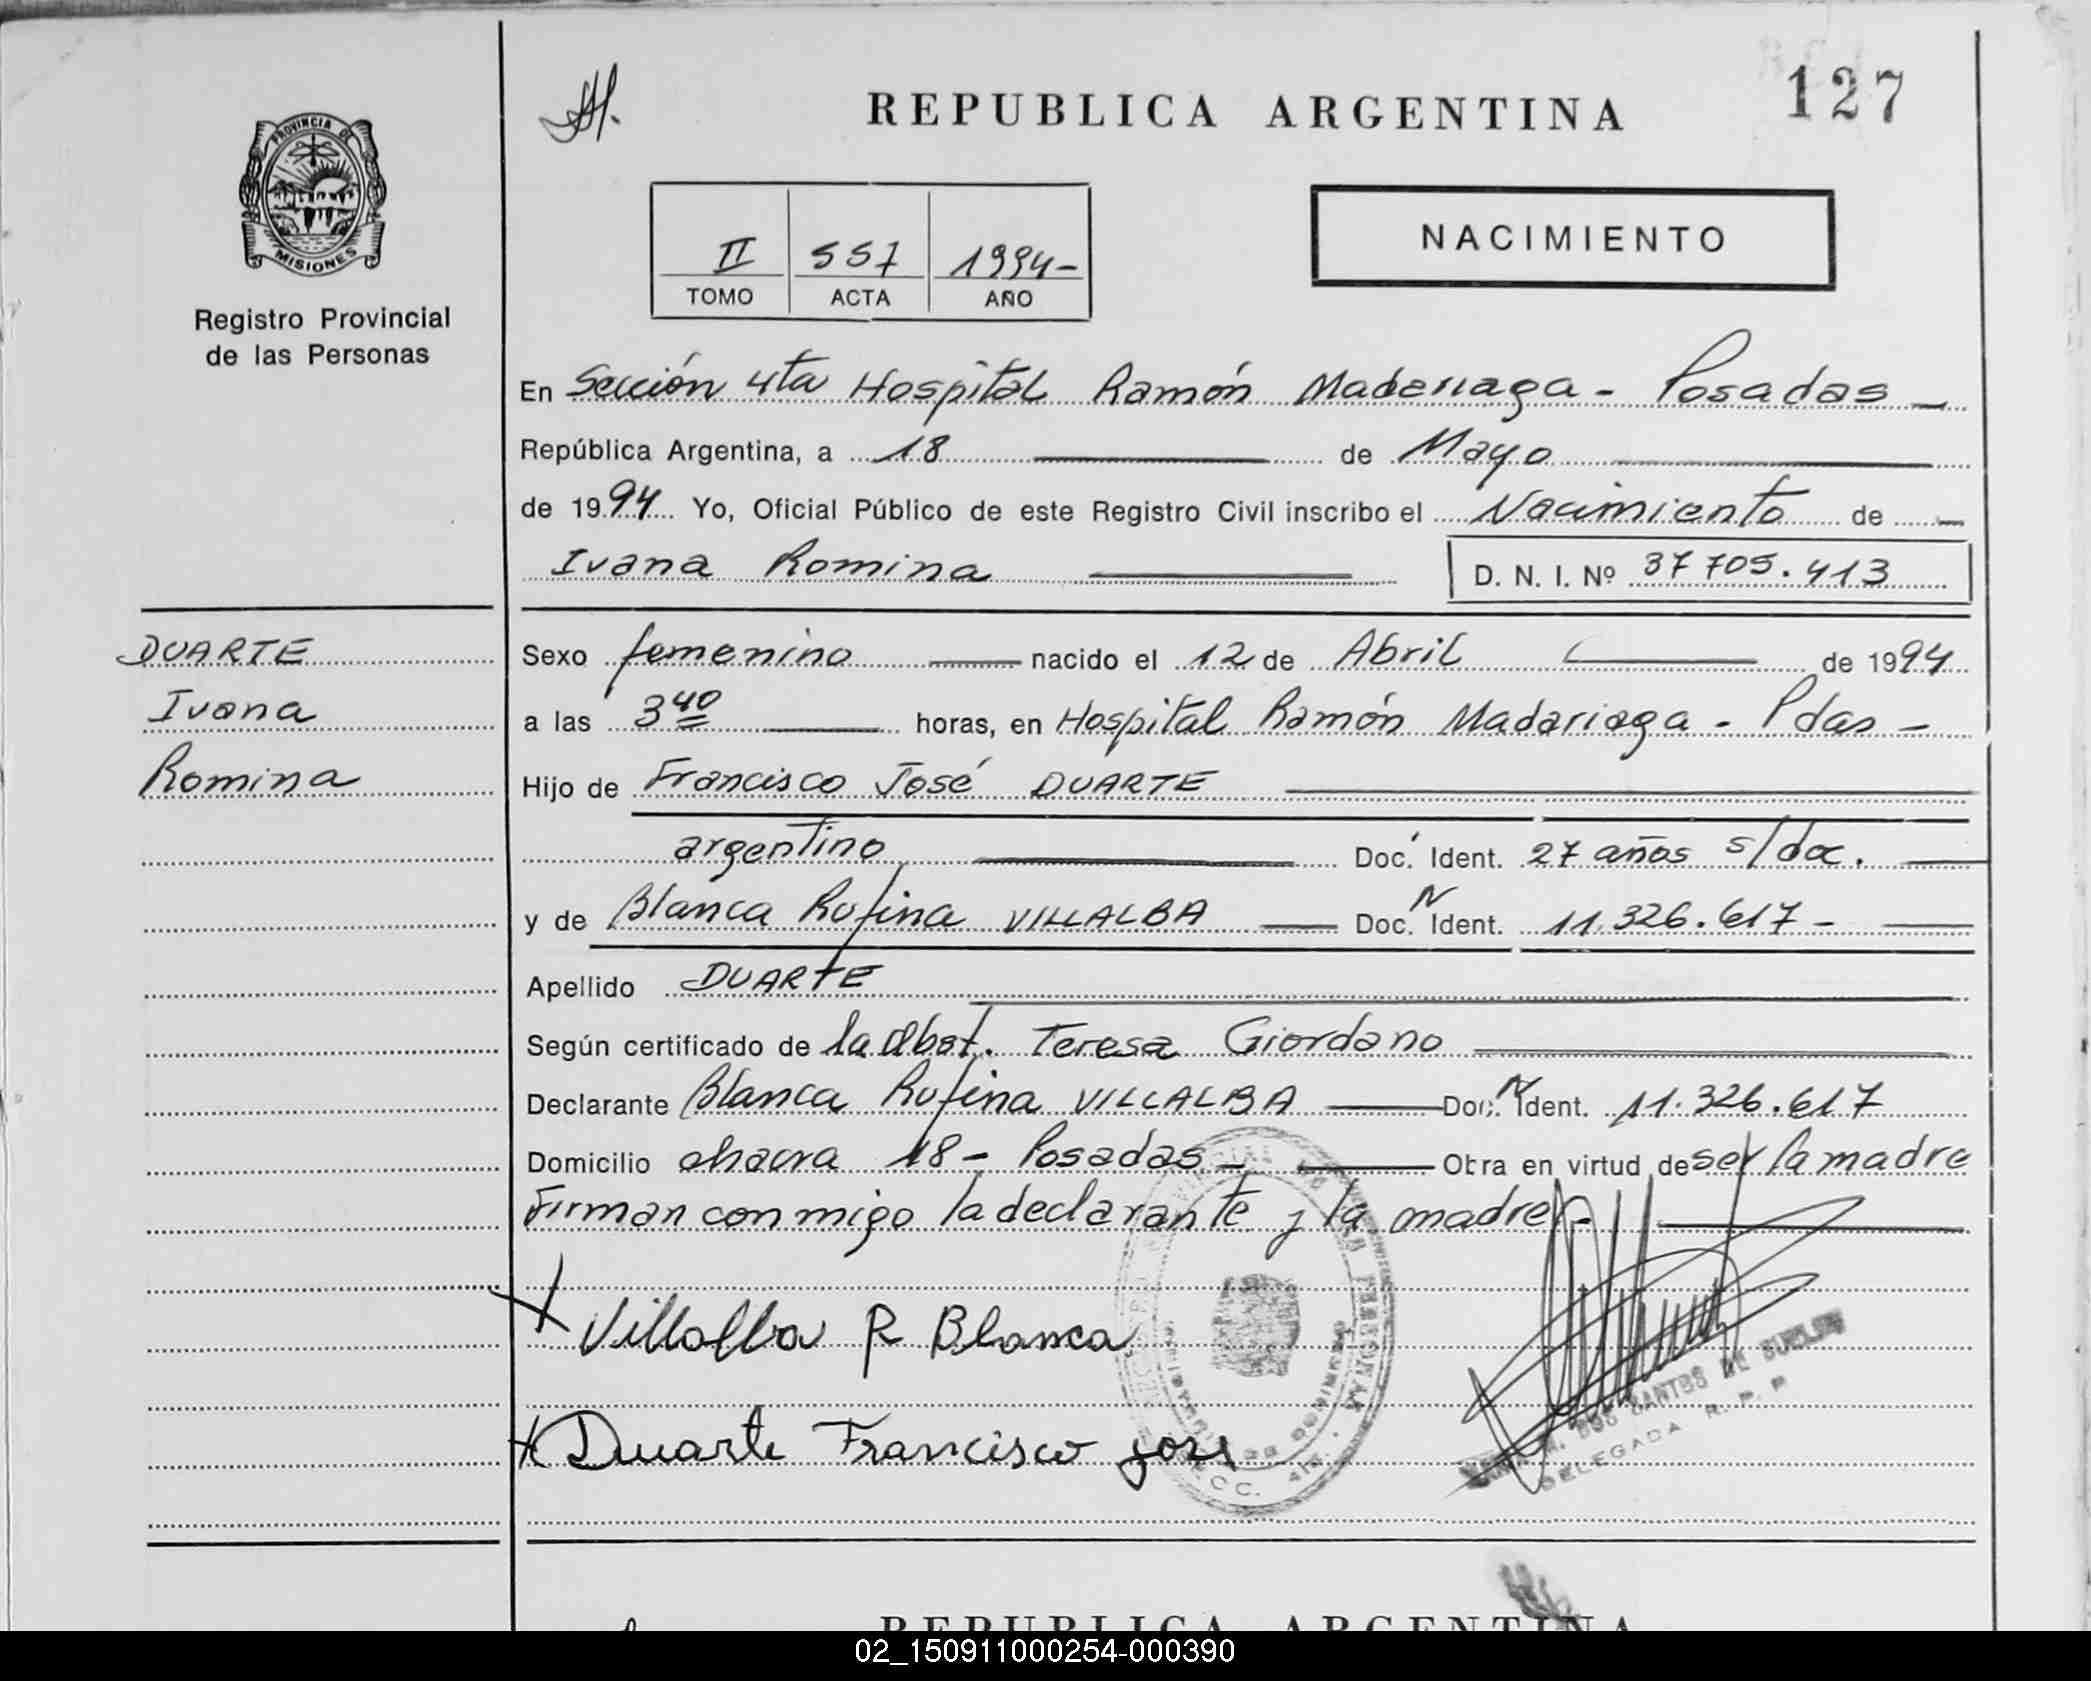 REPUBLICA ARGENTINA
127
PROVINCIA DE
MISIONES
Registro Provincial
de las Personas
II 557 1994-
TOMO ACTA AÑO
NACIMIENTO
En Sección 4ta Hospital Ramón Madariaga - Posadas -
República Argentina, a 18 de Mayo
de 1994 Yo, Oficial Público de este Registro Civil inscribo el Nacimiento de
Ivana Romina
D. N. I. Nº 37 705.413
DUARTE
Ivana
Romina
Sexo femenino nacido el 12 de Abril de 1994
a las 3 40 horas, en Hospital Ramón Madariaga - Pdas -
Hijo de Francisco José DUARTE
argentino Doc. Ident. 27 años s/doc.
y de Blanca Rufina VILLALBA Doc. N Ident. 11.326.617 -
Apellido DUARTE
Según certificado de la Obst. Teresa Giordano
Declarante Blanca Rufina VILLALBA Doc. N Ident. 11.326.617
Domicilio chacra 18 - Posadas - Obra en virtud de ser la madre
Firman conmigo la declarante y la madre -
Villalba R Blanca
Duarte Francisco jose
DOS SANTOS DE
DELEGADA R. P. P
REPUBLICA ARGENTINA
02_150911000254-000390